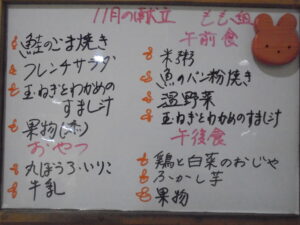 11月の献立 もも組
鮭のごま焼き
フレンチサラダ
玉ねぎとわかめの
すまし汁
果物(柿)
おやつ
丸ぼうろ・いりこ
牛乳
午前食
米粥
魚のパン粉焼き
温野菜
玉ねぎとわかめのすまし汁
午後食
鶏と白菜のおじや
ふかし芋
果物